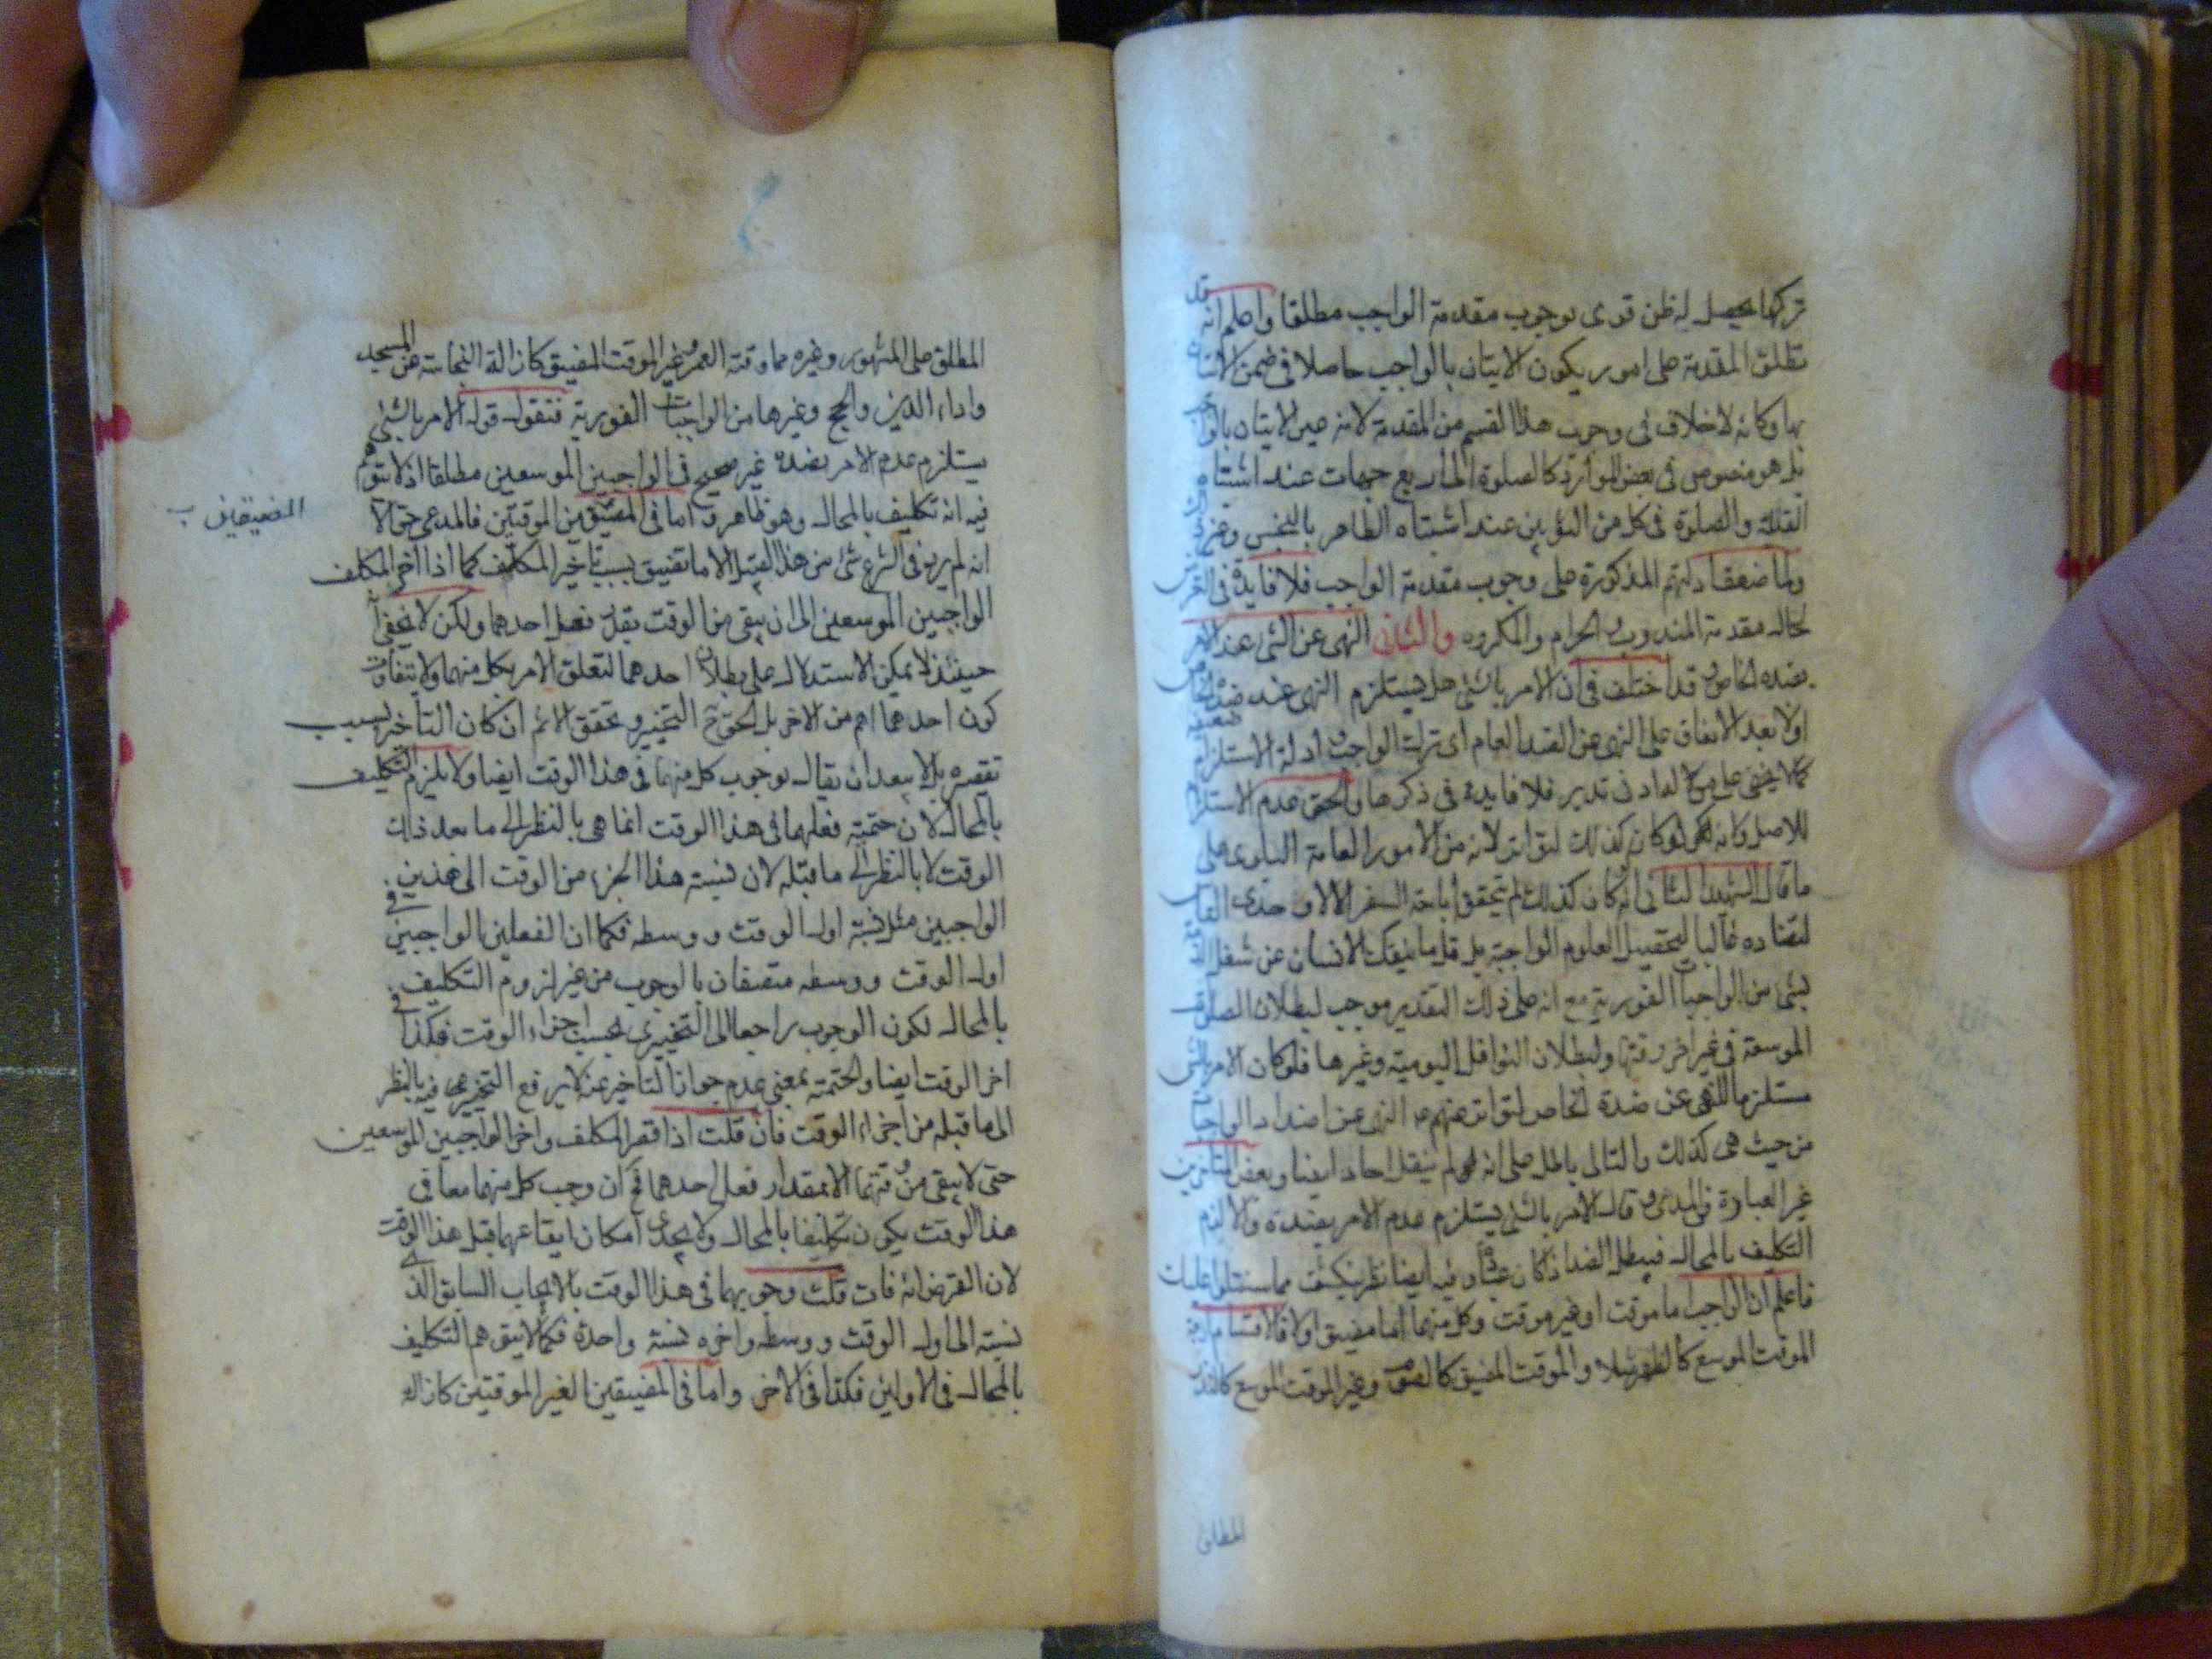 تركها يحصل له ظن قوى بوجوب مقدمة الواجب مطلقا واعلم انه قد
تطلق المقدمة على امور يكون الاتيان بالواجب حاصلا فى ضمن الاتيا
بها وكانه لا خلاف فى وجوب هذا القسم من المقدمة لانه عين الاتيان بالواجب
بل هو منصوص فى بعض الموارد كالصلوة الى اربع جهات عند اشتباه
القبلة والصلوة فى كل من الثوبين عند اشتباه الطاهر بالنجس وغير ذلك
ولما ضعف ادلتهم المذكورة على وجوب مقدمة الواجب فلا فايدة فى التعرض
لحال مقدمة المندوب والحرام والمكروه والثانى النهى عن الشئ عند الامر
بضده الخاص قد اختلف فى ان الامر بالشئ هل يستلزم النهى عند ضده الخاص
اولا بعد الاتفاق على النهى عن الضد العام اى ترك الواجب وادلة الاستلزام ضعيفة
كما لا يخفى على من له ادنى تدبر فلا فايدة فى ذكرها والحق عدم الاستلزام
للاصل وانه لو كان كذلك لتواتر لانه من الامور العامة البلوى على
ما قال الشهيد الثانى انه لو كان كذلك لم يتحقق اباحة السفر الا لاوحدى الناس
لتضاده غالبا لتحصيل العلوم الواجبة بل قل ما ينفك الانسان عن شغل الذمة
بشئ من الواجبات الفورية مع انه على ذلك التقدير موجب لبطلان الصلوة
الموسعة فى غير اخر وقتها ولبطلان النوافل اليومية وغيرها فلو كان الامر بالشئ
مستلزما للنهى عن ضده الخاص لتواتر عنهم ع النهى عن اضداد الواجبات
من حيث هى كذلك والتالى باطل على انه لم ينقل احاد ايضا وبعض المتاخرين
غير العبارة فى المدعى وقال الامر بالشئ يستلزم عدم الامر بضده والا لزم
التكليف بالمحال فيبطل الضد اذا كان عبادة وفيه ايضا نظر ينكشف مما سنتلوا عليك
فاعلم ان الواجب اما موقت او غير موقت وكل منهما اما مضيق اولا فالاقسام اربعة
الموقت الموسع كالظهر مثلا والموقت المضيق كالصوم وغير الموقت الموسع كالنذر
المطلق
المطلق على المشهور وغيره مما وقته العمر وغير الموقت المضيق كازالة النجاسة عن المسجد
واداء الدين والحج وغيرها من الواجبات الفورية فنقول قوله الامر بالشئ
يستلزم عدم الامر بضده غير صحيح فى الواجبين الموسعين مطلقا اذ لا يتوهم
فيه انه تكليف بالمحال وهو ظاهر واما فى المضيقين الموقتين فالمدعى حق الا
المضيقين
انه لم يرد فى الشرع شئ من هذا القبيل الا ما تضيق بسبب تاخير المكلف كما اذا اخر المكلف
الواجبين الموسعين الى ان يبقى من الوقت بقدر فعل احدهما ولكن لا يخفى ان
حينئذ لا يمكن الاستدلال على بطلان احدهما لتعلق الامر بكل منهما ولا يتفاوت
كون احدهما اهم من الاخر بل الحق ح التخيير وتحقق الاثم ان كان التأخير بسبب
تقصيره بل لا يبعد ان يقال بوجوب كل منهما فى هذا الوقت ايضا ولا يلزم التكليف
بالمحال لان حتمية فعلهما فى هذا الوقت انما هى بالنظر الى ما بعد ذلك
الوقت لا بالنظر الى ما قبله لان نسبة هذا الجزء من الوقت الى هذين
الواجبين مثل نسبة اول الوقت ووسطه فكما ان الفعلين الواجبين فى
اول الوقت ووسطه متصفان بالوجوب من غير لزوم التكليف
بالمحال لكون الوجوب راجعا الى التخييرى بحسب اجزاء الوقت فكذا فى
اخر الوقت ايضا والحتمية بمعنى عدم جواز التاخير عنه لا يرفع التخيير فيه بالنظر
الى ما قبله من اجزاء الوقت فان قلت اذا قصر المكلف واخر الواجبين الموسعين
حتى لا يبقى من وقتهما الا بمقدار فعل احدهما فح ان وجب كل منهما معا فى
هذا الوقت يكون تكليفا بالمحال ولا يجدى امكان ايقاعهما قبل هذا الوقت
لان الفرض انه فات قلت وجوبهما فى هذا الوقت بالايجاب السابق الذى
نسبته الى اول الوقت ووسطه واخره نسبة واحدة فكما لا يتوهم التكليف
بالمحال فى الاولين فكذا فى الاخر واما فى المضيقين الغير الموقتين كازالة